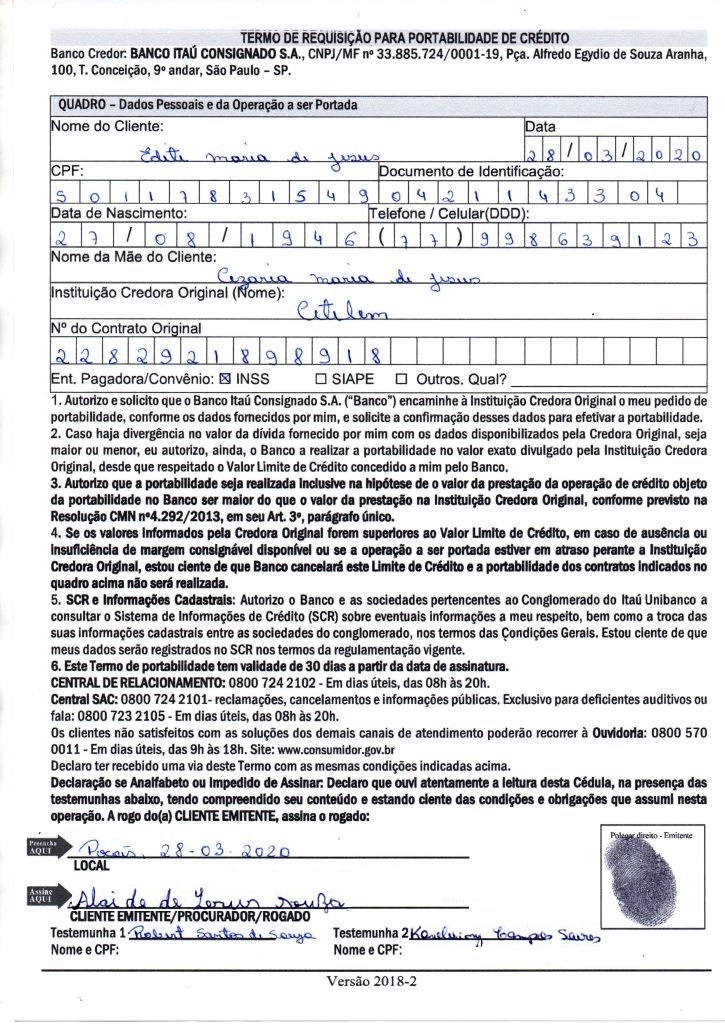 TERMO DE REQUISIÇÃO PARA PORTABILIDADE DE CRÉDITO
Banco Credor: BANCO ITAÚ CONSIGNADO S.A., CNPJ/MF nº 33.885.724/0001-19, Pça. Alfredo Egydio de Souza Aranha,
100, T. Conceição, 9º andar, São Paulo – SP.
QUADRO – Dados Pessoais e da Operação a ser Portada
Nome do Cliente: Data
Edite maria de jesus 28/03/2020
CPF: Documento de Identificação:
50117831549 0421143304
Data de Nascimento: Telefone / Celular(DDD):
27/08/1946 (77)998639123
Nome da Mãe do Cliente:
Cezaria maria de jesus
Instituição Credora Original (Nome):
Cetelem
Nº do Contrato Original
2282921898918
Ent. Pagadora/Convênio: ☒ INSS ☐ SIAPE ☐ Outros. Qual?
1. Autorizo e solicito que o Banco Itaú Consignado S.A. ("Banco") encaminhe à Instituição Credora Original o meu pedido de
portabilidade, conforme os dados fornecidos por mim, e solicite a confirmação desses dados para efetivar a portabilidade.
2. Caso haja divergência no valor da dívida fornecido por mim com os dados disponibilizados pela Credora Original, seja
maior ou menor, eu autorizo, ainda, o Banco a realizar a portabilidade no valor exato divulgado pela Instituição Credora
Original, desde que respeitado o Valor Limite de Crédito concedido a mim pelo Banco.
3. Autorizo que a portabilidade seja realizada inclusive na hipótese de o valor da prestação da operação de crédito objeto
da portabilidade no Banco ser maior do que o valor da prestação na Instituição Credora Original, conforme previsto na
Resolução CMN nº4.292/2013, em seu Art. 3º, parágrafo único.
4. Se os valores informados pela Credora Original forem superiores ao Valor Limite de Crédito, em caso de ausência ou
insuficiência de margem consignável disponível ou se a operação a ser portada estiver em atraso perante a Instituição
Credora Original, estou ciente de que Banco cancelará este Limite de Crédito e a portabilidade dos contratos indicados no
quadro acima não será realizada.
5. SCR e Informações Cadastrais: Autorizo o Banco e as sociedades pertencentes ao Conglomerado do Itaú Unibanco a
consultar o Sistema de Informações de Crédito (SCR) sobre eventuais informações a meu respeito, bem como a troca das
suas informações cadastrais entre as sociedades do conglomerado, nos termos das Condições Gerais. Estou ciente de que
meus dados serão registrados no SCR nos termos da regulamentação vigente.
6. Este Termo de portabilidade tem validade de 30 dias a partir da data de assinatura.
CENTRAL DE RELACIONAMENTO: 0800 724 2102 - Em dias úteis, das 08h às 20h.
Central SAC: 0800 724 2101- reclamações, cancelamentos e informações públicas. Exclusivo para deficientes auditivos ou
fala: 0800 723 2105 - Em dias úteis, das 08h às 20h.
Os clientes não satisfeitos com as soluções dos demais canais de atendimento poderão recorrer à Ouvidoria: 0800 570
0011 - Em dias úteis, das 9h às 18h. Site: www.consumidor.gov.br
Declaro ter recebido uma via deste Termo com as mesmas condições indicadas acima.
Declaração se Analfabeto ou Impedido de Assinar: Declaro que ouvi atentamente a leitura desta Cédula, na presença das
testemunhas abaixo, tendo compreendido seu conteúdo e estando ciente das condições e obrigações que assumi nesta
operação. A rogo do(a) CLIENTE EMITENTE, assina o rogado:
Polegar direito - Emitente
Preencha AQUI 28-03-2020
LOCAL
Assine AQUI Alaide de Souza
CLIENTE EMITENTE/PROCURADOR/ROGADO
Testemunha 1 Robert Santos de Souza Testemunha 2 Campos
Nome e CPF: Nome e CPF:
Versão 2018-2